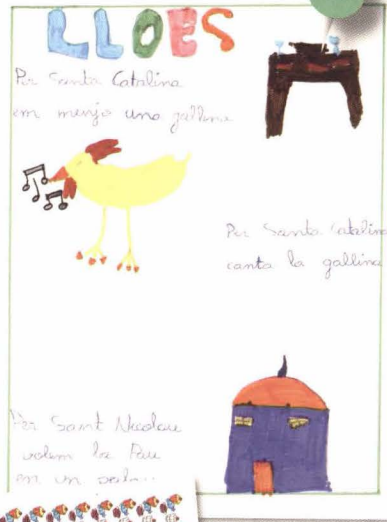 LLOES
Per Santa Catalina
em menjo una gallina
Per Santa Catalina
canta la gallina
Per Sant Nicolau
volem la Pau
en un